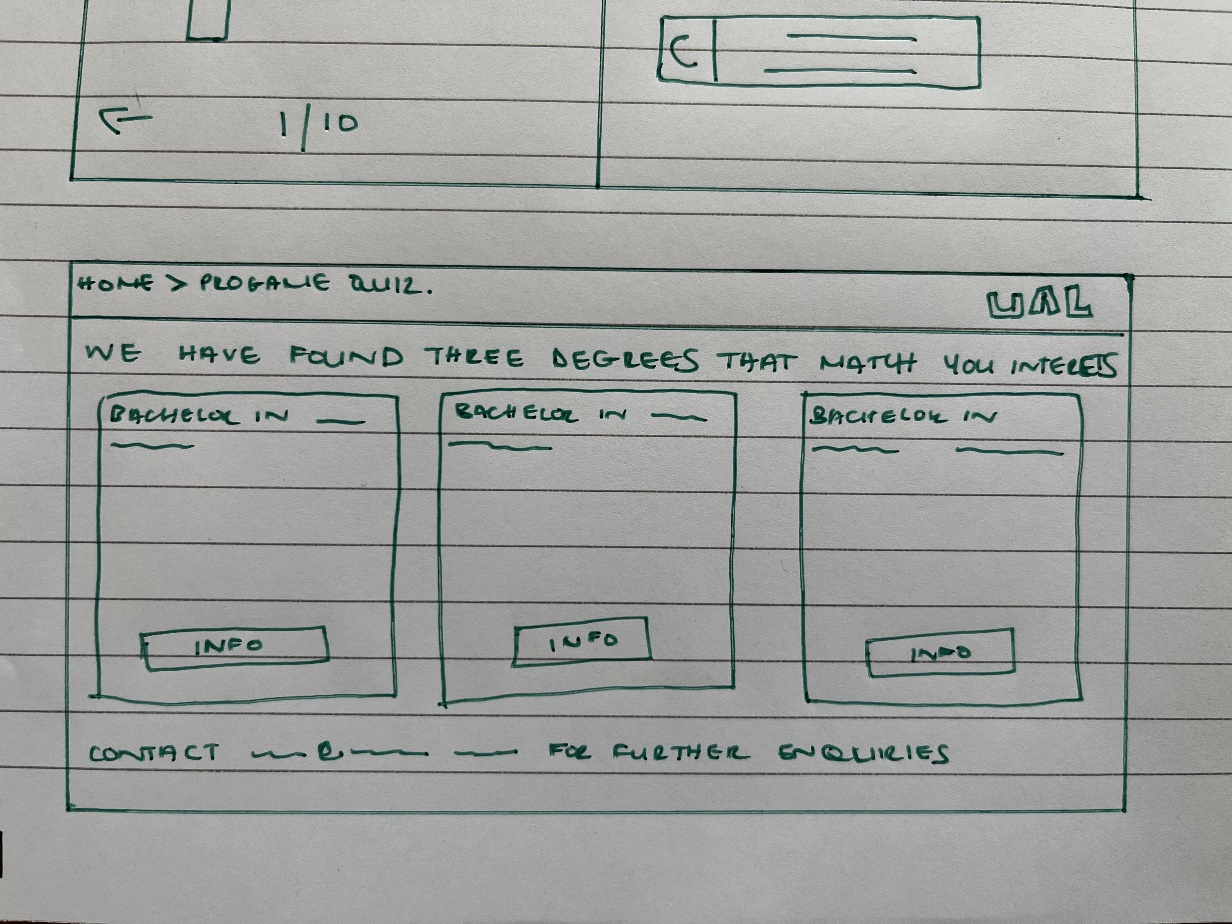 C
1/10
HOME > PROGAME QUIZ.
UAL
WE HAVE FOUND THREE DEGREES THAT MATCH YOU INTERETS
BACHELOR IN
BACHELOR IN
BACHELOR IN
INFO
INFO
INFO
CONTACT @ FOR FURTHER ENQUIRIES